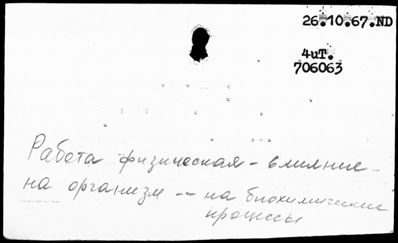 26.10.67.ND
4uT.
706063
Работа физическая - влияние -
на организм -- на биохимические
процессы